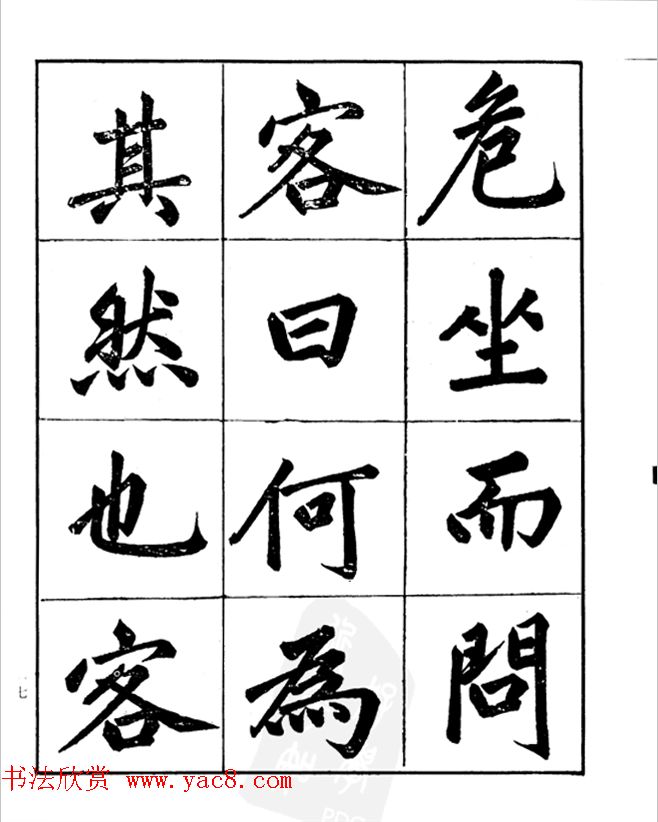 危坐而問
客曰何為
其然也客
七
书法欣赏 www.yac8.com